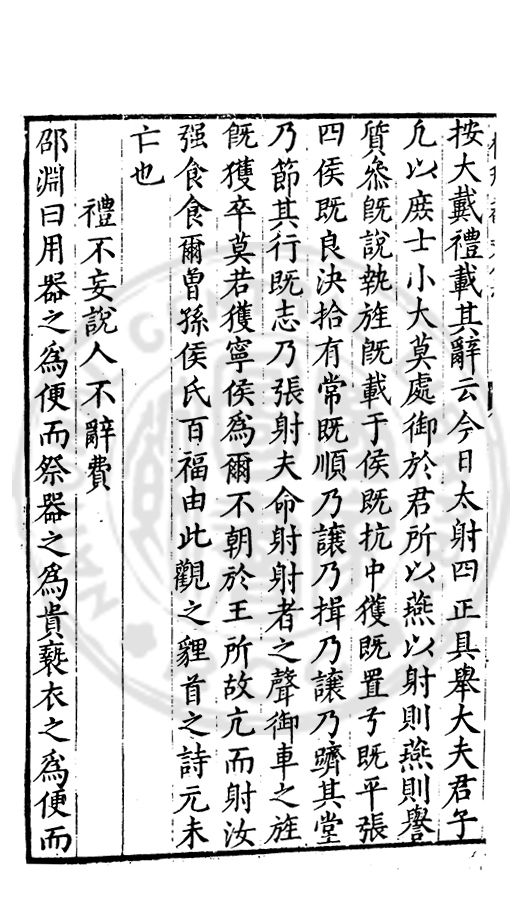 按大戴禮載其辭云今日太射四正具舉大夫君子
凢以庶士小大莫處御於君所以燕以射則燕則譽
質叅既說執旌既載于侯既抗中獲既置弓既平張
四侯既良決拾有常既順乃讓乃揖乃讓乃隮其堂
乃節其行既志乃張射夫命射射者之聲御車之旌
既獲卒莫若獲寧侯為爾不朝於王所故亢而射汝
强食食爾曾孫侯氏百福由此觀之貍首之詩元未
亡也
禮不妄說人不辭費
邵淵曰用器之為便而祭器之為貴褻衣之為便而